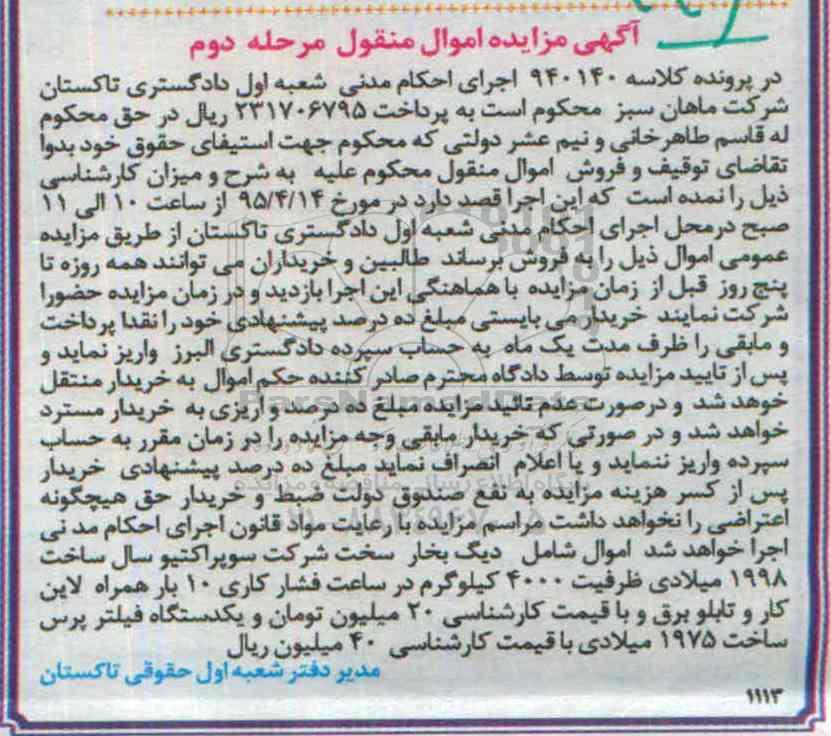 آگهی مزایده اموال منقول مرحله دوم
در پرونده کلاسه ۹۴۰۱۴۰ اجرای احکام مدنی شعبه اول دادگستری تاکستان
شرکت ماهان سبز محکوم است به پرداخت ۲۳۱۷۰۶۷۹۵ ریال در حق محکوم
له قاسم طاهرخانی و نیم عشر دولتی که محکوم جهت استیفای حقوق خود بدوا
تقاضای توقیف و فروش اموال منقول محکوم علیه به شرح و میزان کارشناسی
ذیل را نمده است که این اجرا قصد دارد در مورخ ۹۵/۴/۱۴ از ساعت ۱۰ الی ۱۱
صبح درمحل اجرای احکام مدنی شعبه اول دادگستری تاکستان از طریق مزایده
عمومی اموال ذیل را به فروش برساند طالبین و خریداران می توانند همه روزه تا
پنج روز قبل از زمان مزایده با هماهنگی این اجرا بازدید و در زمان مزایده حضورا
شرکت نمایند خریدار می بایستی مبلغ ده درصد پیشنهادی خود را نقدا پرداخت
و مابقی را ظرف مدت یک ماه به حساب سپرده دادگستری البرز واریز نماید و
پس از تایید مزایده توسط دادگاه محترم صادر کننده حکم اموال به خریدار منتقل
خوهد شد و درصورت عدم تائید مزایده مبلغ ده درصد واریزی به خریدار مسترد
خواهد شد و در صورتی که خریدار مابقی وجه مزایده را در زمان مقرر به حساب
سپرده واریز ننماید و یا اعلام انصراف نماید مبلغ ده درصد پیشنهادی خریدار
پس از کسر هزینه مزایده به نفع صندوق دولت ضبط و خریدار حق هیچگونه
اعتراضی را نخواهد داشت مراسم مزایده با رعایت مواد قانون اجرای احکام مد نی
اجرا خواهد شد اموال شامل دیگ بخار سخت شرکت سوپراکتیو سال ساخت
۱۹۹۸ میلادی ظرفیت ۴۰۰۰ کیلوگرم در ساعت فشار کاری ۱۰ بار همراه لاین
کار و تابلو برق و با قیمت کارشناسی ۲۰ میلیون تومان و یکدستگاه فیلتر پرس
ساخت ۱۹۷۵ میلادی با قیمت کارشناسی ۴۰ میلیون ریال
مدیر دفتر شعبه اول حقوقی تاکستان
۱۱۱۳
ParsNamadData
پایگاه اطلاع رسانی مناقصه و مزایده